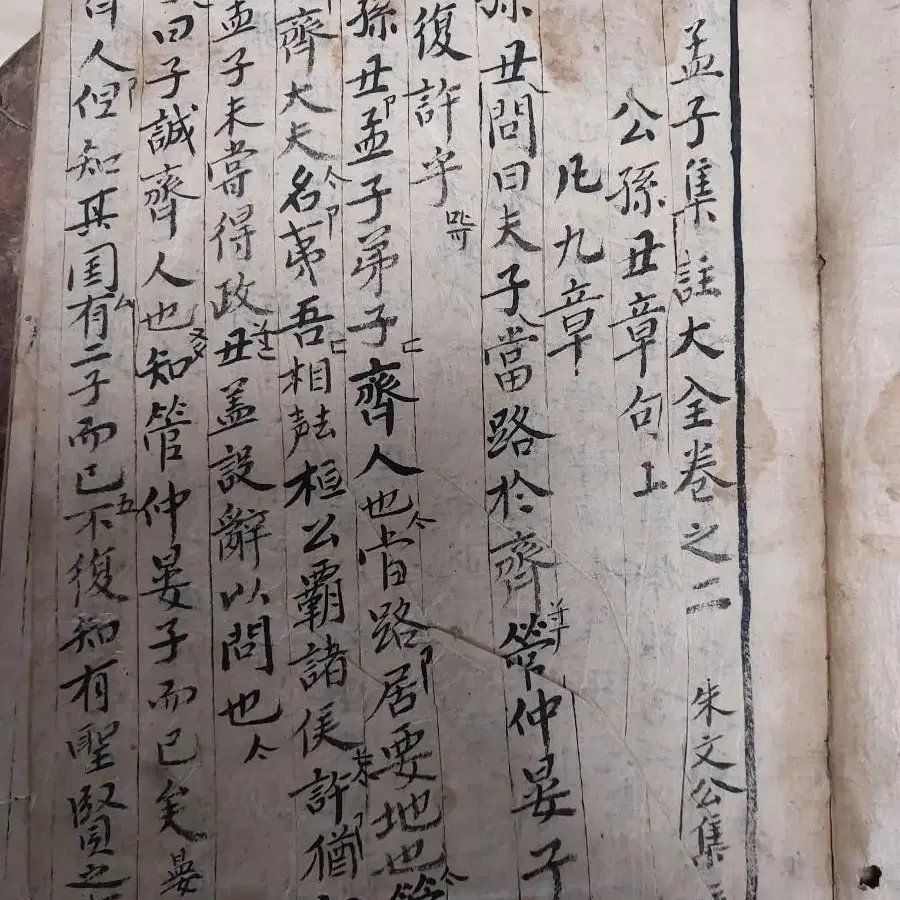 孟子集註大全卷之二 朱文公集
公孫丑章句上
凡九章
孫丑問曰夫子當路於齊管仲晏子
復許乎
孫丑孟子弟子齊人也當路居要地也管
齊大夫名夷吾相去声桓公霸諸侯許猶
孟子未嘗得政丑盖設辭以問也
曰子誠齊人也知管仲晏子而已矣
人但知其国有二子而已不復知有聖賢之